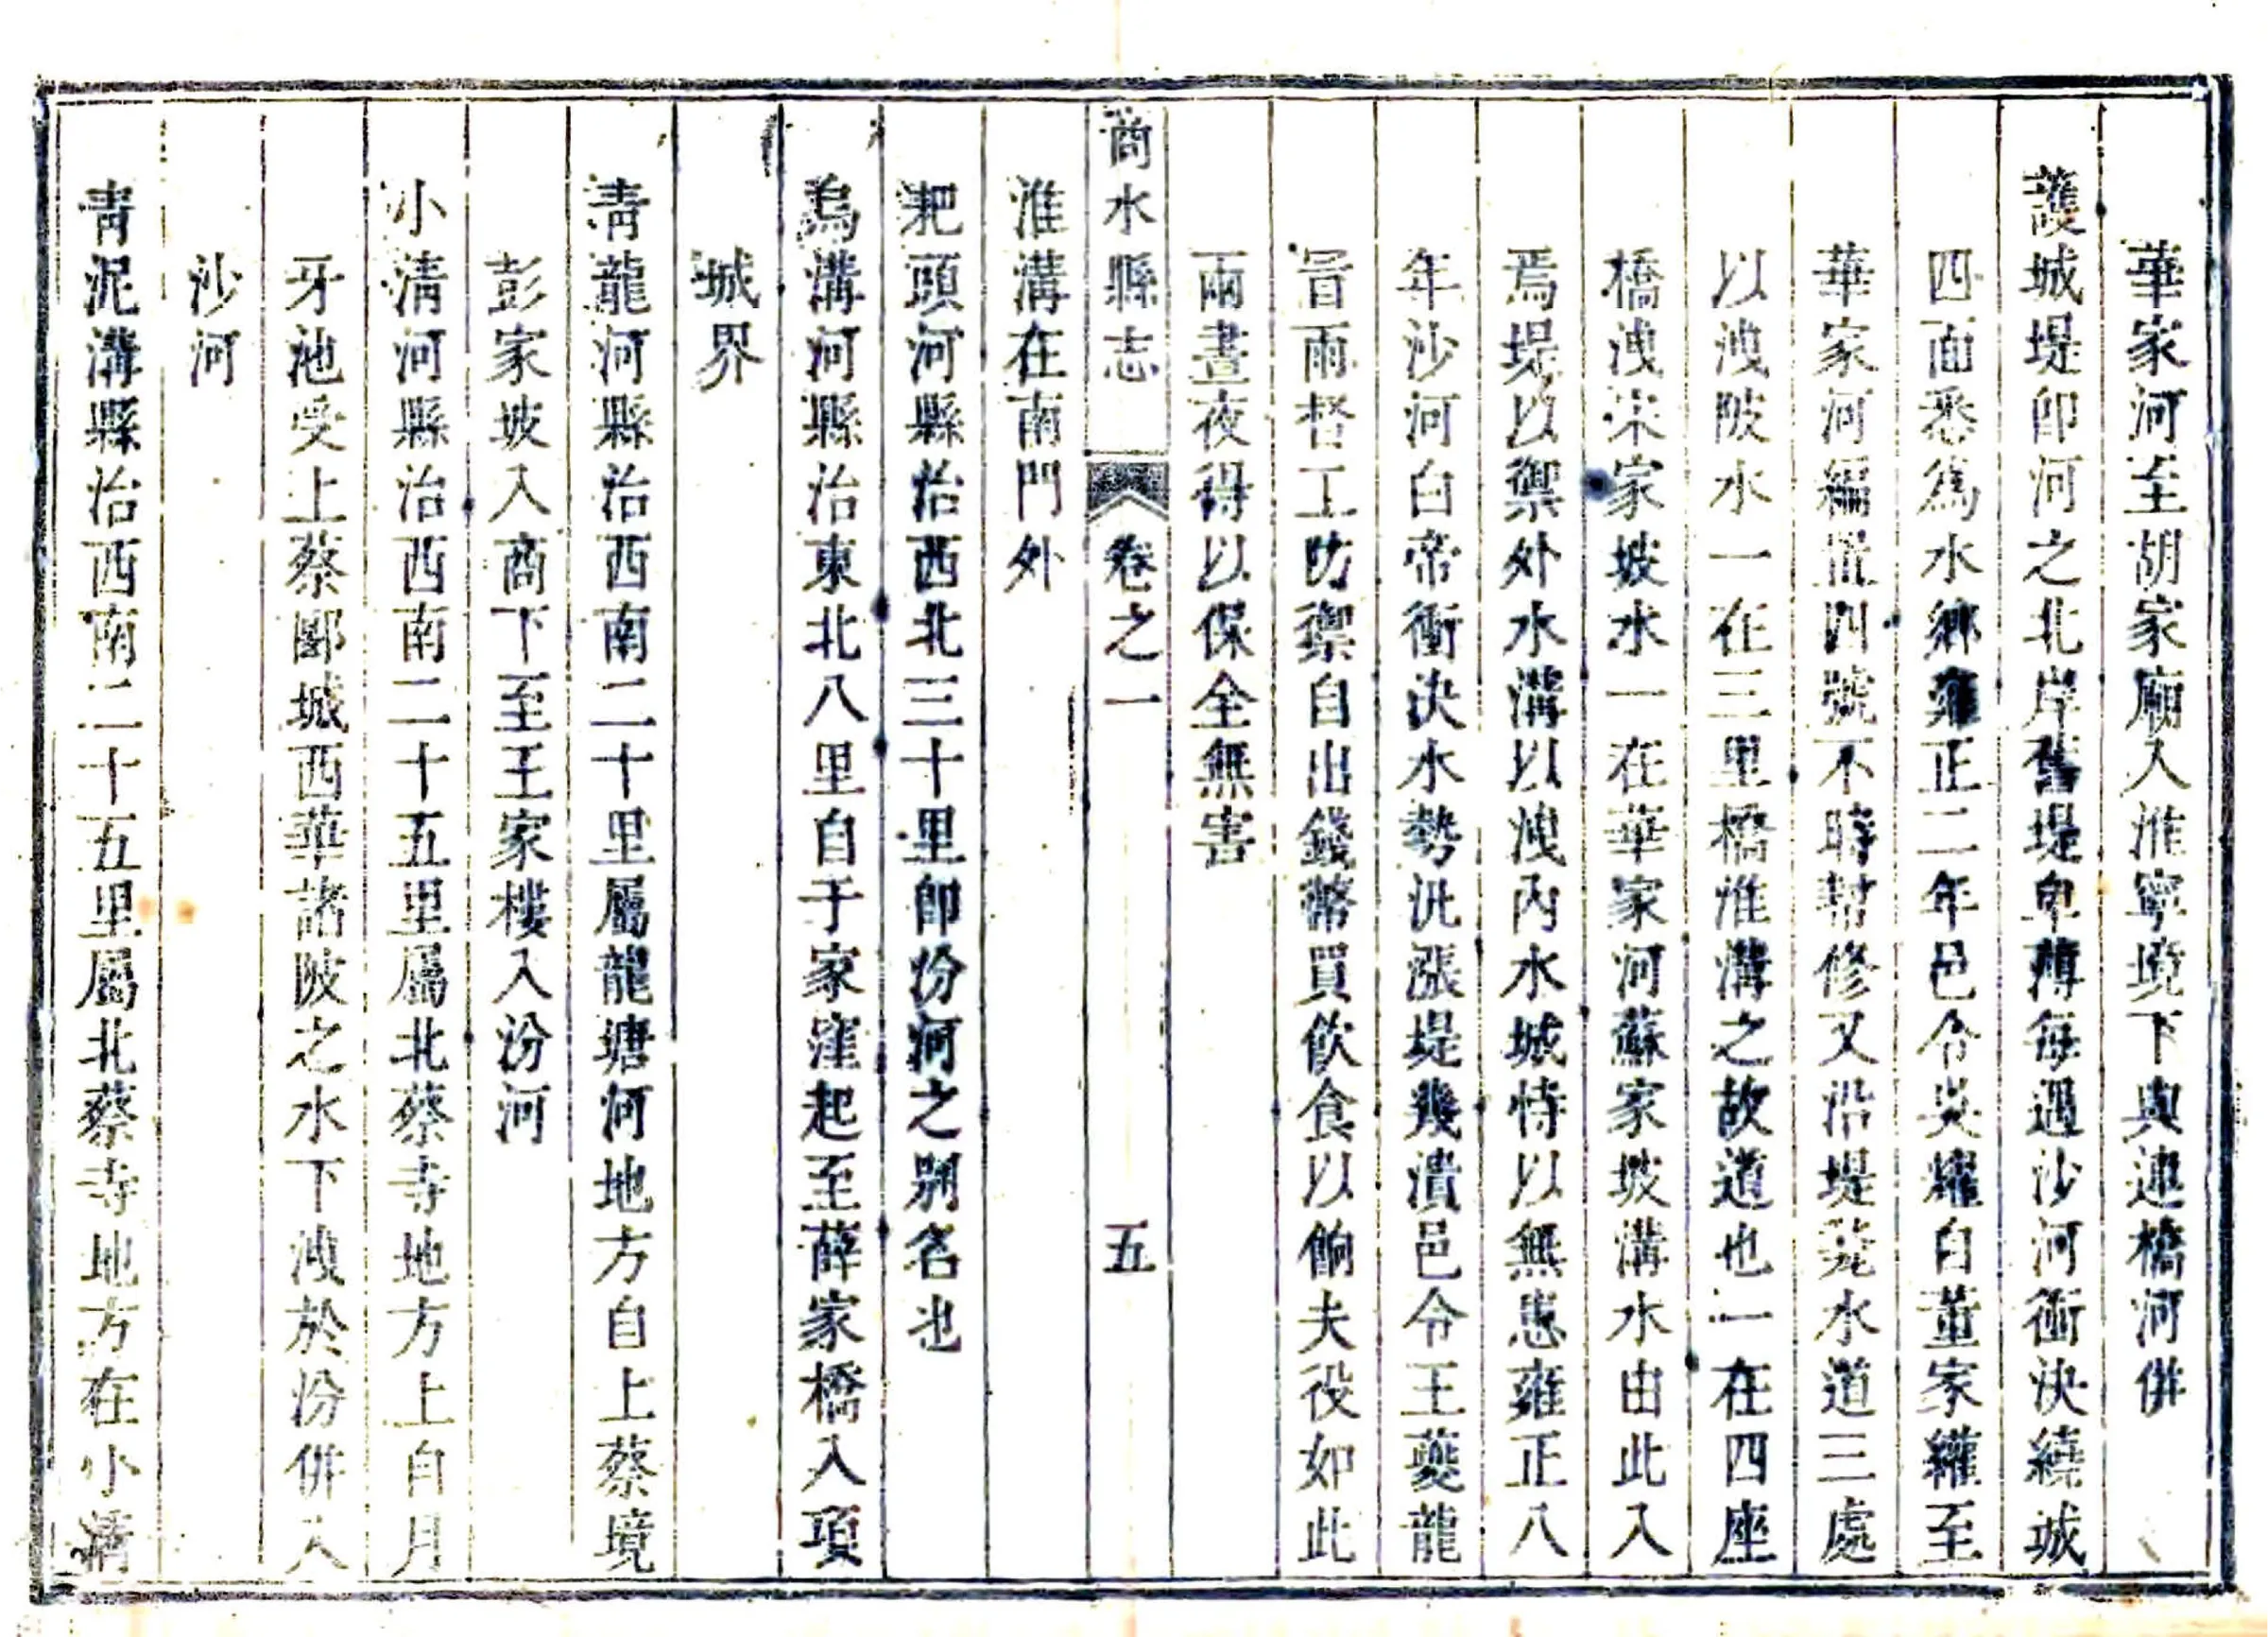 華家河至胡家廟入淮寧境下與連橋河併
護城堤卽河之北岸舊堤卑薄每遇沙河衝決繞城
四面悉爲水鄉雍正二年邑令吳燿自董家纙至
華家河編置四號不時幇修又沿堤凳水道三處
以洩陂水一在三里橋淮溝之故道也一在四座
橋洩宋家坡水一在華家河蘇家坡溝水由此入
焉堤以禦外水溝以洩內水城恃以無患雍正八
年沙河白帝衝決水勢汎漲堤幾潰邑令王夔龍
冒雨督工防禦自出錢幣買飲食以餉夫役如此
兩晝夜得以保全無害
商水縣志 卷之一 五
淮溝在南門外
耙頭河縣治西北三十里卽汾河之別名也
烏溝河縣治東北八里自于家窪起至薛家橋入項
城界
靑龍河縣治西南二十里屬龍塘河地方自上蔡境
彭家坡入商下至王家樓入汾河
小淸河縣治西南二十五里屬北蔡寺地方上自月
牙池受上蔡郾城西華諸陂之水下洩於汾併入
沙河
靑泥溝縣治西南二十五里屬北蔡寺地方在小淸